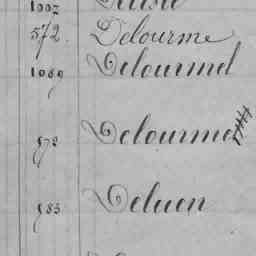 1002
572. Delourme
1069 Delourmel
972 Delourmel
983 Deluen